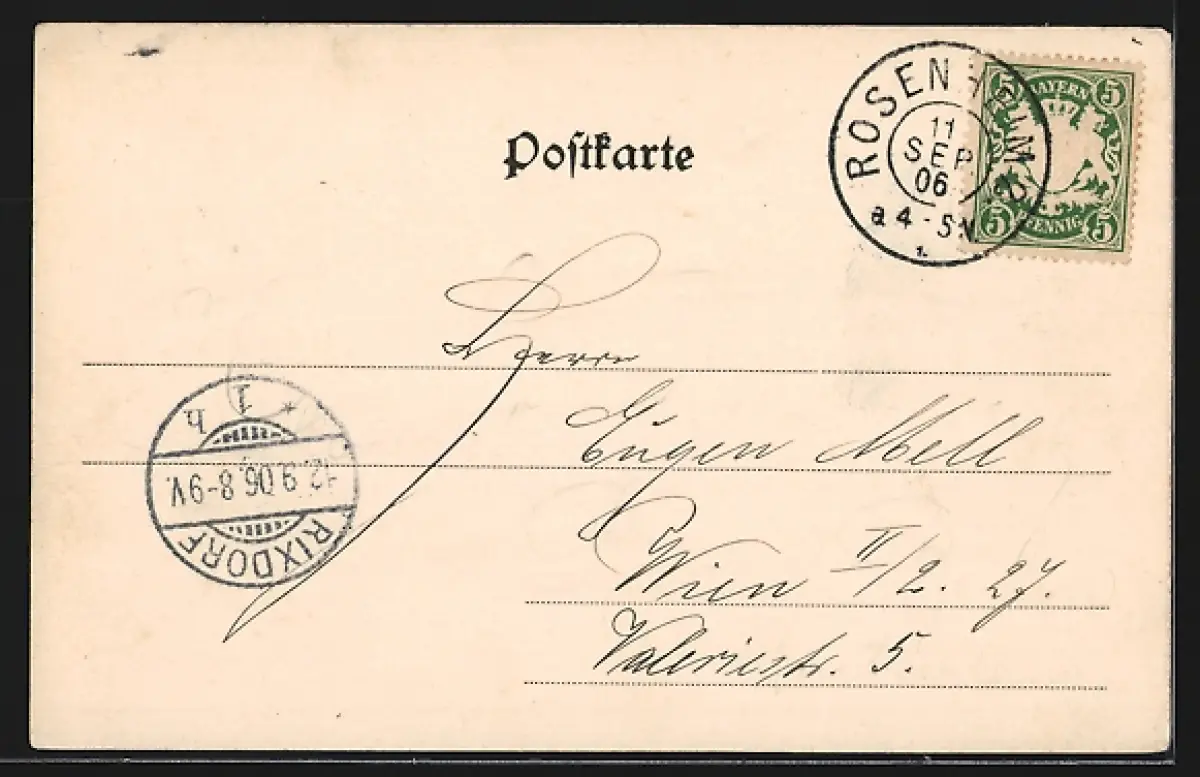 Postkarte
ROSENHEIM 2
11
SEP
06
a 4-5 N
5 BAYERN 5
5 PFENNIG 5
Herrn
Eugen Mell
Wien II/2. 27.
Valeriestr. 5.
1 h
12.9.06.8-9V.
RIXDORF